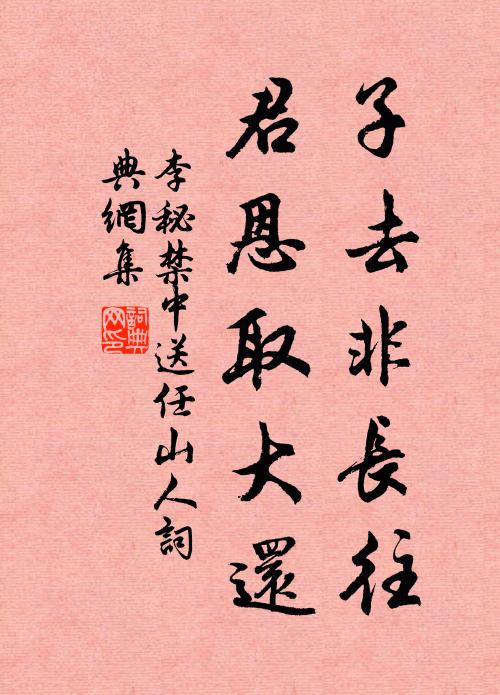 子去非長往
君恩取大還
李秘禁中送任山人詞
典網集
詞典网印